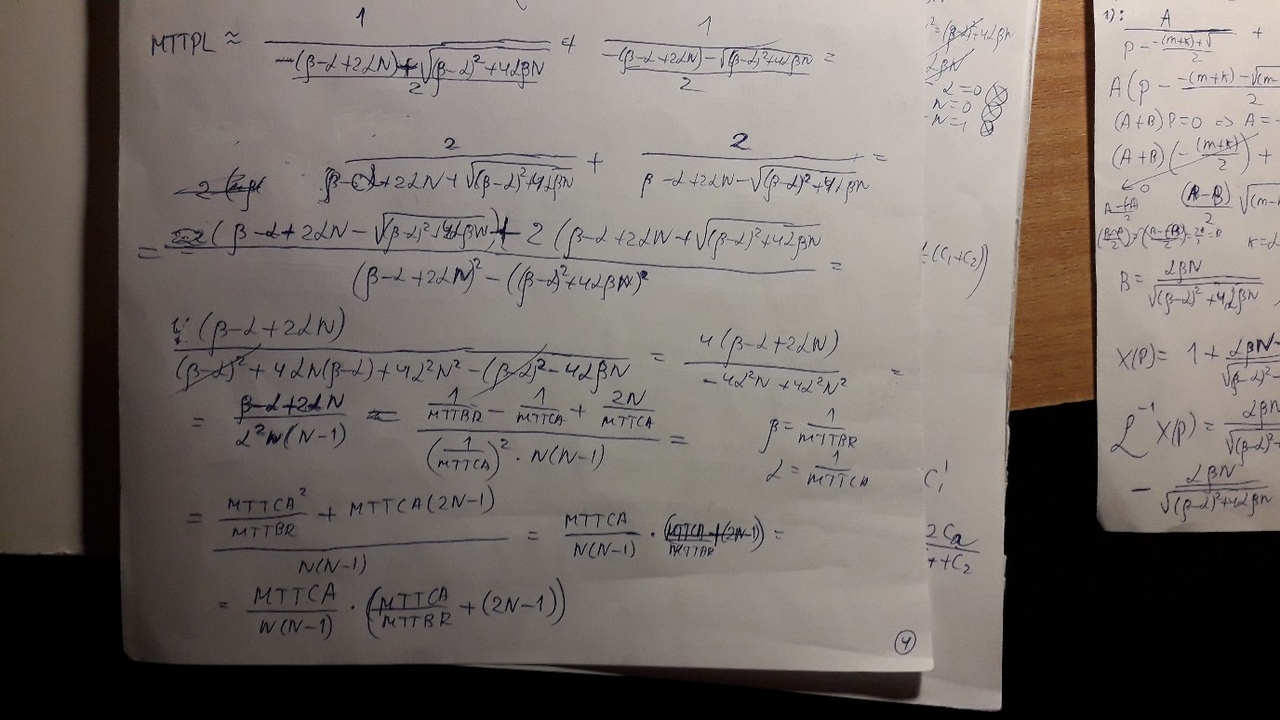 MTTPL ≈ 1 / ((-(β-α+2αN)+√((β-α)²+4αβN))/2) + 1 / ((-(β-α+2αN)-√((β-α)²+4αβN))/2) =
2 / (β-α+2αN+√((β-α)²+4αβN)) + 2 / (β-α+2αN-√((β-α)²+4αβN)) =
= (2(β-α+2αN-√((β-α)²+4αβN)) + 2(β-α+2αN+√((β-α)²+4αβN))) / ((β-α+2αN)² - ((β-α)²+4αβN)²) =
4(β-α+2αN) / ((β-α)²+4αN(β-α)+4α²N²-(β-α)²-4αβN) = 4(β-α+2αN) / (-4α²N+4α²N²) =
= (β-α+2αN) / (α²N(N-1)) = (1/MTTBR - 1/MTTCA + 2N/MTTCA) / ((1/MTTCA)² · N(N-1)) =
β = 1/MTTBR
α = 1/MTTCA
= (MTTCA²/MTTBR + MTTCA(2N-1)) / N(N-1) = MTTCA/N(N-1) · (MTTCA/MTTBR+(2N-1)) =
= MTTCA/N(N-1) · (MTTCA/MTTBR + (2N-1))
4
α=0
N=0
N=1
(C₁+C₂)
C₁¹
1):
A / (p - (-(m+k)+√
A(p - (-(m+k)-√(m-
(A+B)P=0 => A=-
(A+B)(-(m+k)/2) +
0
(A-B)/2 √(m-
B = αβN / √((β-α)²+4αβN)
X(P) = 1 + αβN
L⁻¹X(P) = αβN
- αβN / √((β-α)²+4αβN